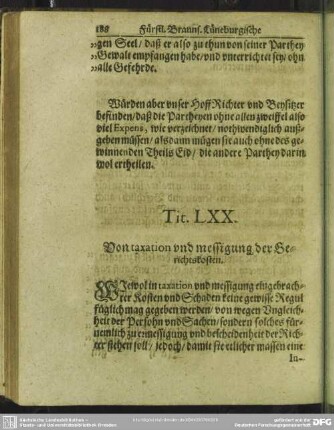 188 Fürstl. Braunß. Lüneburgische
„gen Seel / daß er also zu thun von seiner Parthey
„Gewalt empfangen habe / vnd vnterrichtet sey / ohn
„alle Gefehrde.
Würden aber vnser Hoff Richter vnd Beysitzer
befinden / daß die Partheyen ohne allen zweiffel also
viel Expens, wie verzeichnet / nothwendiglich auß-
geben müssen / alsdann mügen sie auch ohne des ge-
winnenden Theils Eid / die andere Parthey darin
wol ertheilen.
Tit. LXX.
Von taxation vnd messigung der Ge-
richtskosten.
WJewol in taxation vnd messigung eingebrach-
ter Kosten vnd Schaden keine gewisse Regul
füglich mag gegeben werden / von wegen Vngleich-
heit der Persohn vnd Sachen / sondern solches für-
nemlich zu ermessigung vnd bescheidenheit der Rich-
ter stehen soll / jedoch / damit sie etlicher massen eine
In-
DFG